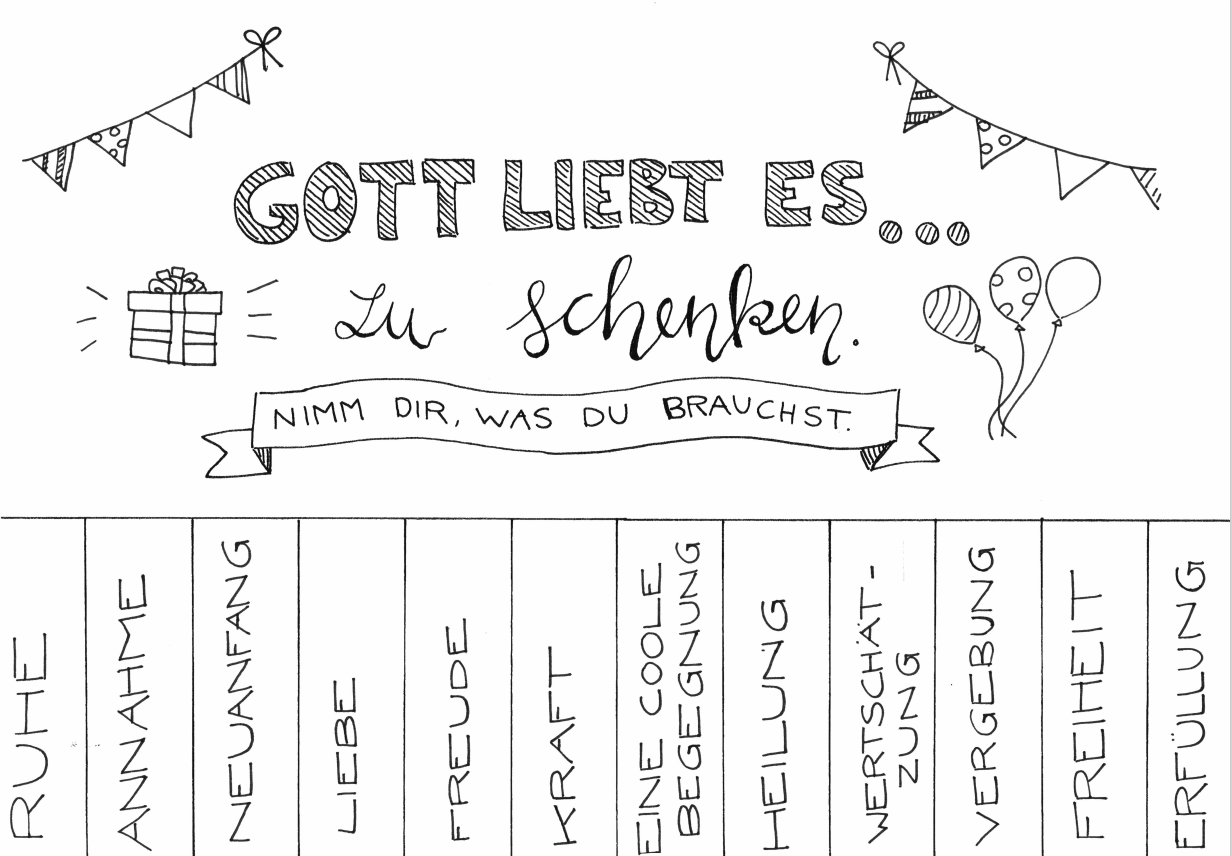 GOTT LIEBT ES...
zu schenken.
NIMM DIR, WAS DU BRAUCHST.
RUHE
ANNAHME
NEUANFANG
LIEBE
FREUDE
KRAFT
EINE COOLE
BEGEGNUNG
HEILUNG
WERTSCHÄT-
ZUNG
VERGEBUNG
FREIHEIT
ERFÜLLUNG